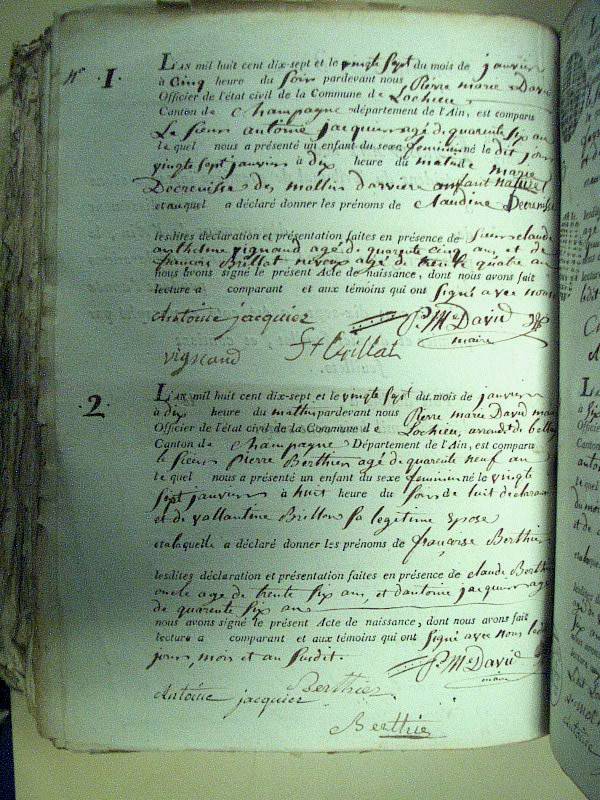 N° 1. L'AN mil huit cent dix-sept et le vingte sept du mois de janvier
à Cinq heure du soir pardevant nous Pierre marie David
Officier de l'état civil de la Commune de Lochieu
Canton de Champagne département de l'Ain, est comparu
Le sieur antoine jacquier agé de quarente six an
le quel nous a présenté un enfant du sexe femminin né le dit jour
vingte sept janvier à dix heure du matin de marie
Decrenisse des mollin darviere anfant naturel
et auquel a déclaré donner les prénoms de claudine Decrenisse
lesdites déclaration et présentation faites en présence de sieur claude
anthelme vignand agé de quarente cinq an et de
francois Brillat neveux agé de trente quatre an
nous avons signé le présent Acte de naissance, dont nous avons fait
lecture a comparant et aux témoins qui ont signé avec nous
Antoine jacquier P. M. David
maire
vignand ft Brillat
2. L'AN mil huit cent dix-sept et le vingte sept du mois de janvier
à dix heure du matin pardevant nous Pierre marie David
Officier de l'état civil de la Commune de Lochieu, arrond. de
Canton de Champagne Département de l'Ain, est comparu
le sieur Pierre Berthier agé de quarente neuf an
le quel nous a présenté un enfant du sexe femminin né le vingte
sept janvier à huit heure du soir de luit declarant
et de vallantine Brillon sa legitime Epose
et a laquelle a déclaré donner les prénoms de françoise Berthier
lesdites déclaration et présentation faites en présence de claude Berthier
oncle age de trente six an, et dantoine jacquier age
de quarente six an
nous avons signé le présent Acte de naissance, dont nous avons fait
lecture a comparant et aux témoins qui ont signé avec nous les
jour, mois et an susdit.
P. M. David
maire
Antoine jacquier Berthier
Berthier